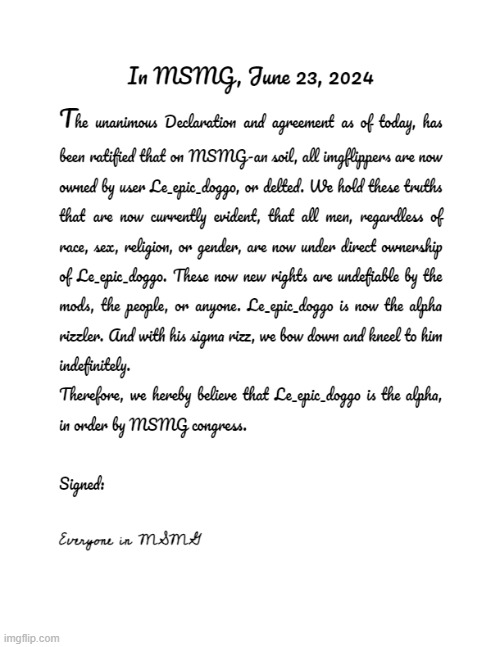 In MSMG, June 23, 2024
The unanimous Declaration and agreement as of today, has
been ratified that on MSMG-an soil, all imgflippers are now
owned by user Le_epic_doggo, or delted. We hold these truths
that are now currently evident, that all men, regardless of
race, sex, religion, or gender, are now under direct ownership
of Le_epic_doggo. These now new rights are undefiable by the
mods, the people, or anyone. Le_epic_doggo is now the alpha
rizzler. And with his sigma rizz, we bow down and kneel to him
indefinitely.
Therefore, we hereby believe that Le_epic_doggo is the alpha,
in order by MSMG congress.
Signed:
Everyone in MSMG
imgflip.com